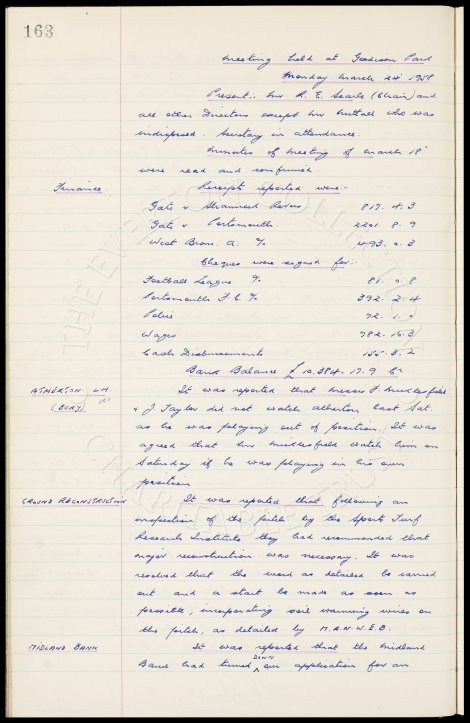 163
Meeting held at Goodison Park
Monday March 24 1958
Present:- Mr R. E. Searle (Chair) and
all other Directors except Mr Nuttall who was
indisposed. Secretary in attendance.
Minutes of Meeting of March 18
were read and confirmed
Finance. Receipts reported were:-
Gate v Shamrock Rovers 817. 4. 3
Gate v Portsmouth 2201. 8. 9
West Brom. A. %
Cheques were signed for:-
Football League %
Portsmouth F.C. % 392. 2. 4
Police
Wages 782. 16. 3
Cash Disbursements 155. 3. 2
Bank Balance £10,384. 17. 9 Cr
ATHERTON LH It was reported that Messrs F. Middlesfield
(BURY) & J. Taylor did not watch Atherton last Sat
as he was playing out of position. It was
agreed that Mr Middlesfield watch him on
Saturday if he was playing in his own
position
GROUND RECONSTRUCTION It was reported that following an
inspection of the pitch by the Sports Turf
Research Institute they had recommended that
major reconstruction was necessary. It was
resolved that the work as detailed be carried
out and a start be made as soon as
possible, incorporating soil warming wires on
the pitch, as detailed by M.A.N.W.E.B.
MIDLAND BANK It was reported that the Midland
Bank had turned DOWN our application for an
THE EVERTON COLLECTION
CHARITABLE TRUST